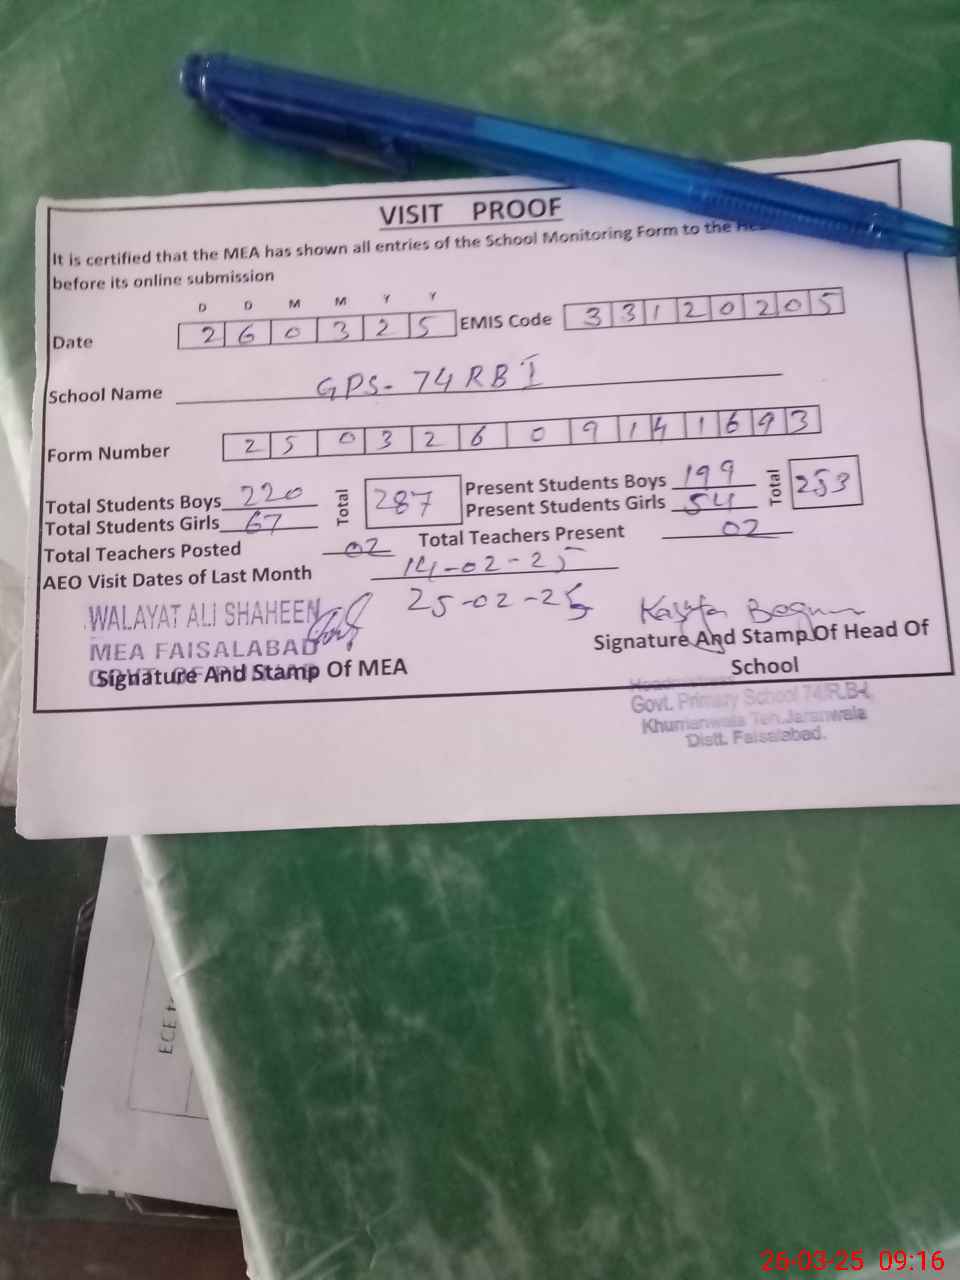 VISIT PROOF
It is certified that the MEA has shown all entries of the School Monitoring Form to the
before its online submission
D D M M Y Y
Date 2 6 0 3 2 5 EMIS Code 3 3 1 2 0 2 0 5
School Name GPS- 74 RB I
Form Number 2 5 0 3 2 6 0 9 1 4 1 6 9 3
Total Students Boys 220 Total 287 Present Students Boys 199 Total 253
Total Students Girls 67 Present Students Girls 54
Total Teachers Posted 02 Total Teachers Present 02
AEO Visit Dates of Last Month 14-02-25
25-02-25
WALAYAT ALI SHAHEEN
MEA FAISALABAD
Signature And Stamp Of MEA
Signature And Stamp Of Head Of
School
Govt. Primary School 74/R.B-I,
Khumanwala Teh.Jaranwala
Distt. Faisalabad.
ECE
26-03-25 09:16